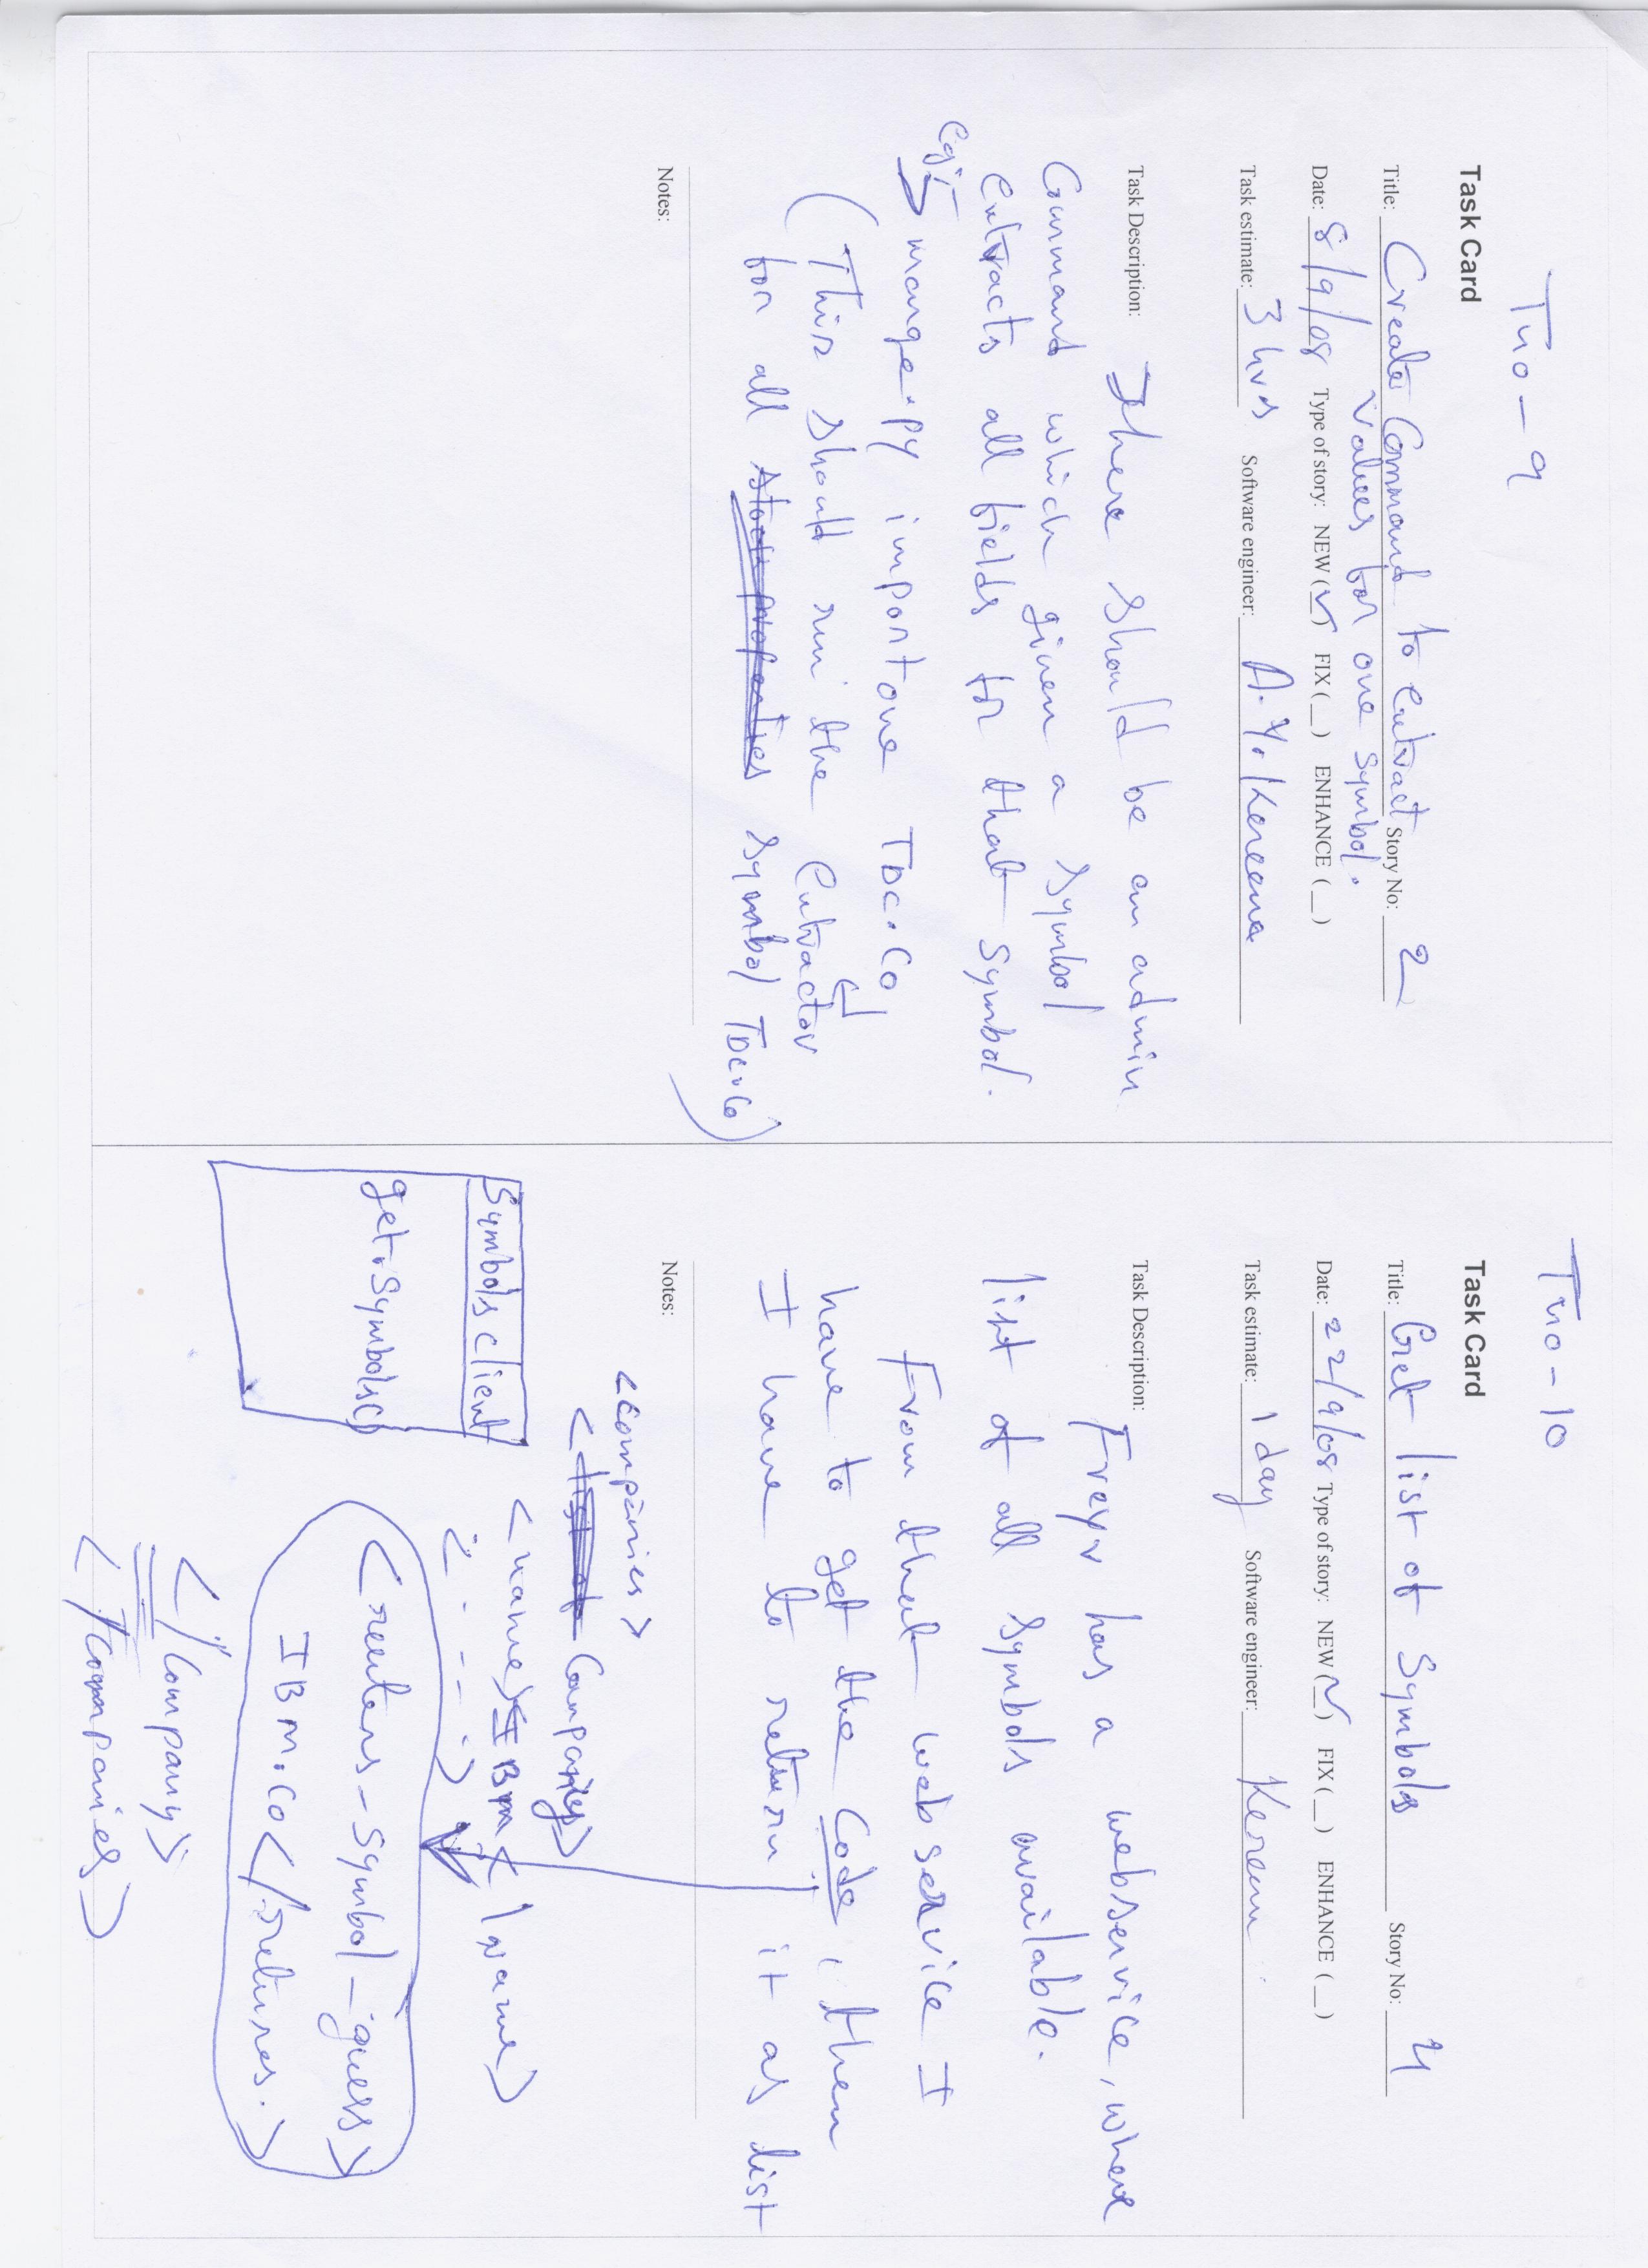 Tno-9
Task Card
Title: Create Command to extract Story No: 2
values for one symbol.
Date: 8/9/08 Type of story: NEW (✓) FIX (_) ENHANCE (_)
Task estimate: 3 hrs Software engineer: A.Y./Kereema
Task Description: There should be an admin
Command which given a symbol
extracts all fields for that symbol.
eg:-
> mange.py importone TDC.CO ↵
(This should run the extractor
for all symbol TDC.CO)
Notes:
Tno-10
Task Card
Title: Get list of Symbols Story No: 4
Date: 22/9/08 Type of story: NEW (✓) FIX (_) ENHANCE (_)
Task estimate: 1 day Software engineer: Kereem
Task Description: Freyr has a webservice, where
list of all symbols available.
From that webservice I
have to get the Code, then
I have to return it as list
Notes:
<companies>
< Company>
<name>IBM</name>
<reuters-symbol-guess>
IBM.CO</retures.>
</Company>
</companies>
Symbols client
get.Symbols()